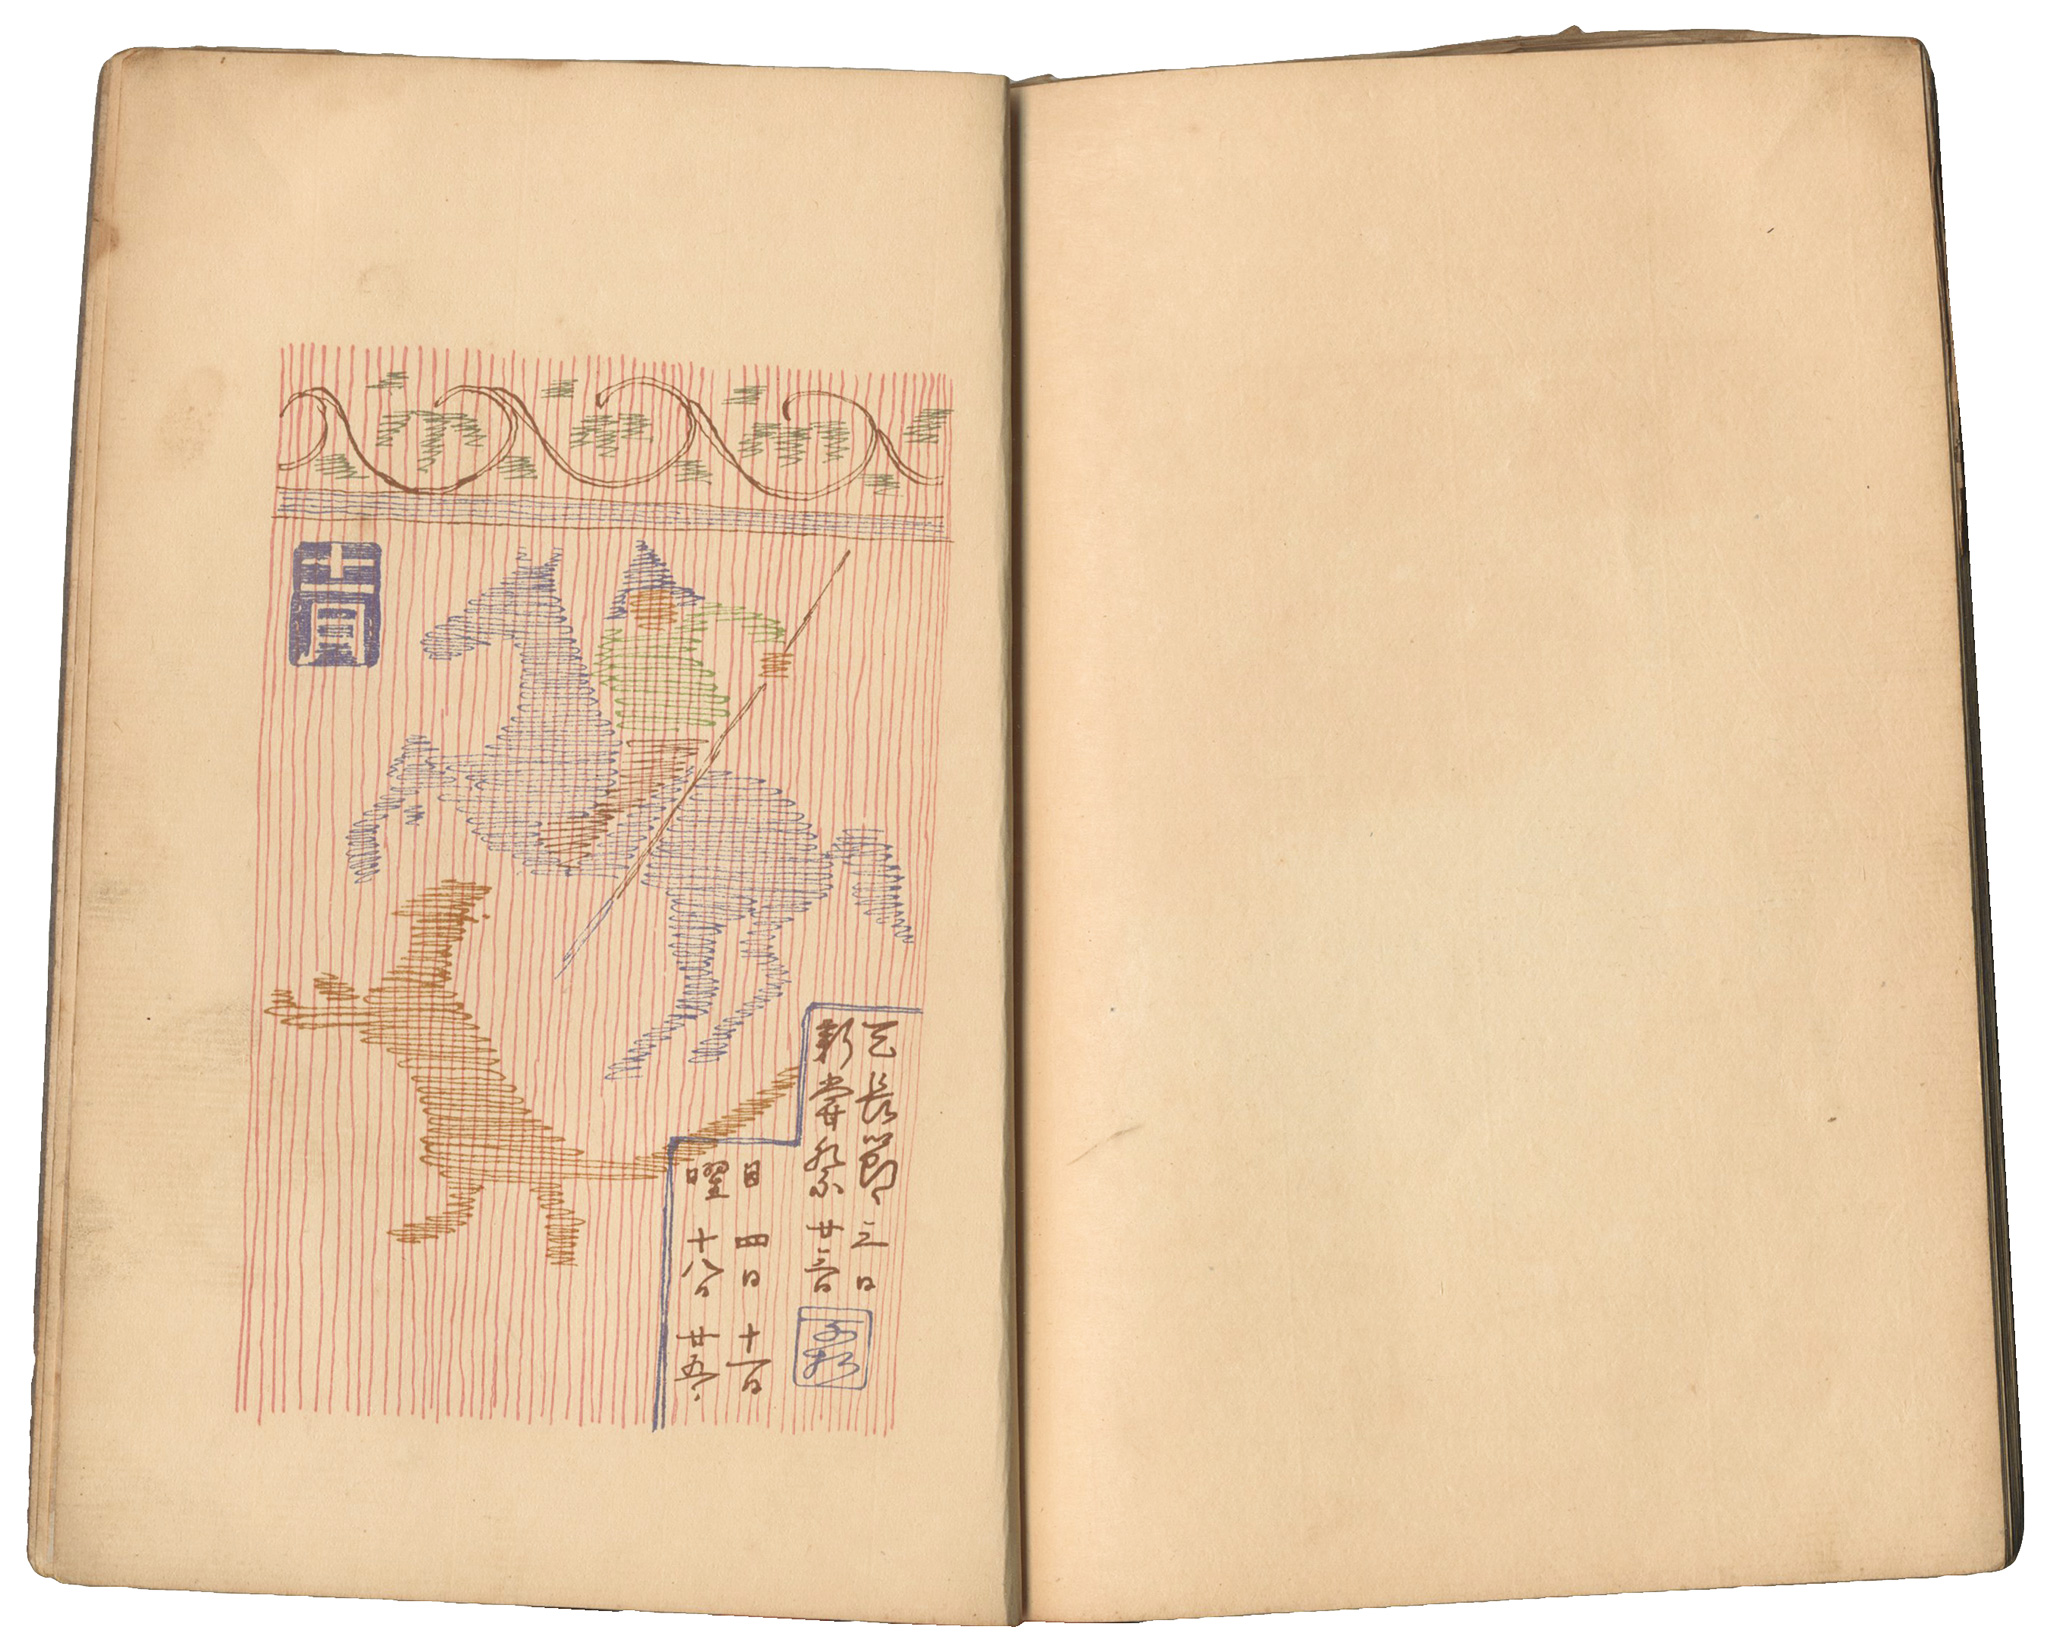 十一月
天長節 三日
新嘗祭 廿三日
日 四日 十一日
曜 十八日 廿五日